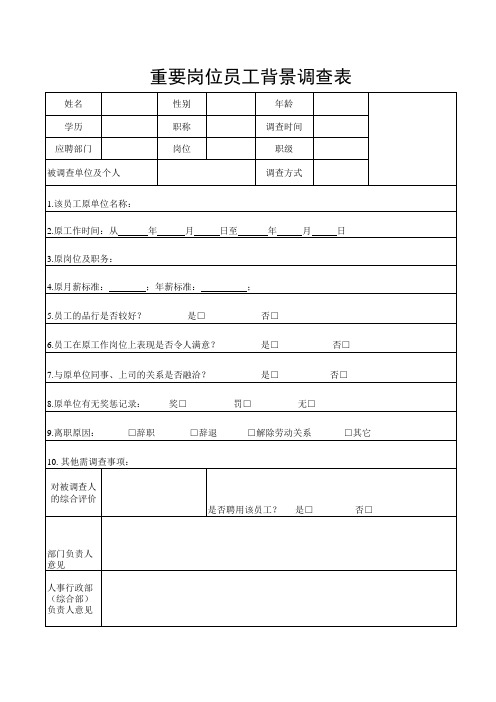 重要岗位员工背景调查表
姓名 性别 年龄
学历 职称 调查时间
应聘部门 岗位 职级
被调查单位及个人 调查方式
1.该员工原单位名称:
2.原工作时间:从 年 月 日至 年 月 日
3.原岗位及职务:
4.原月薪标准: ;年薪标准: ;
5.员工的品行是否较好? 是□ 否□
6.员工在原工作岗位上表现是否令人满意? 是□ 否□
7.与原单位同事、上司的关系是否融洽? 是□ 否□
8.原单位有无奖惩记录: 奖□ 罚□ 无□
9.离职原因: □辞职 □辞退 □解除劳动关系 □其它
10. 其他需调查事项:
对被调查人
的综合评价
是否聘用该员工? 是□ 否□
部门负责人
意见
人事行政部
(综合部)
负责人意见